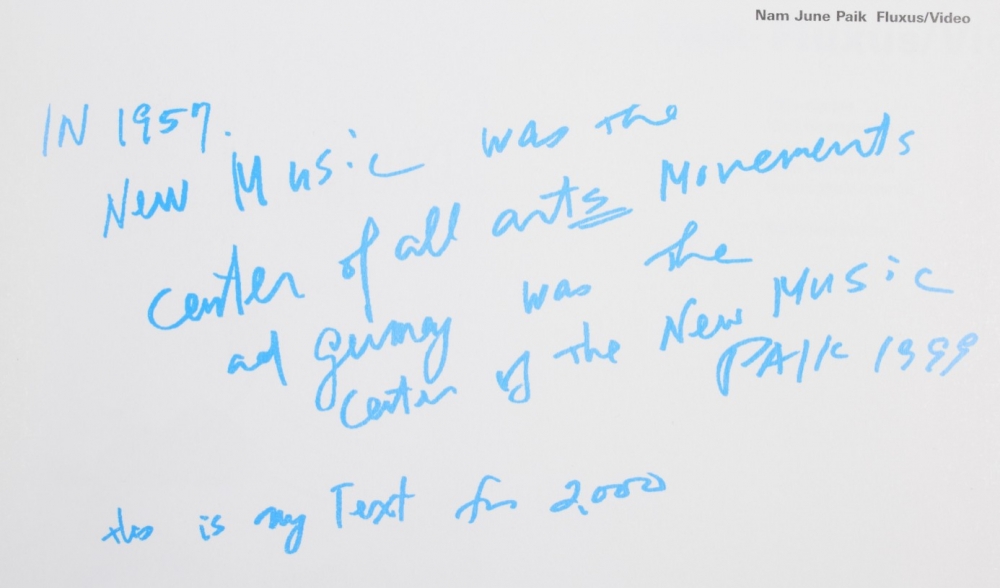 Nam June Paik Fluxus/Video
IN 1957.
New Music was the
center of all arts Movements
ad Germay was the
center of the New Music
PAIK 1999
this is my Text for 2,000